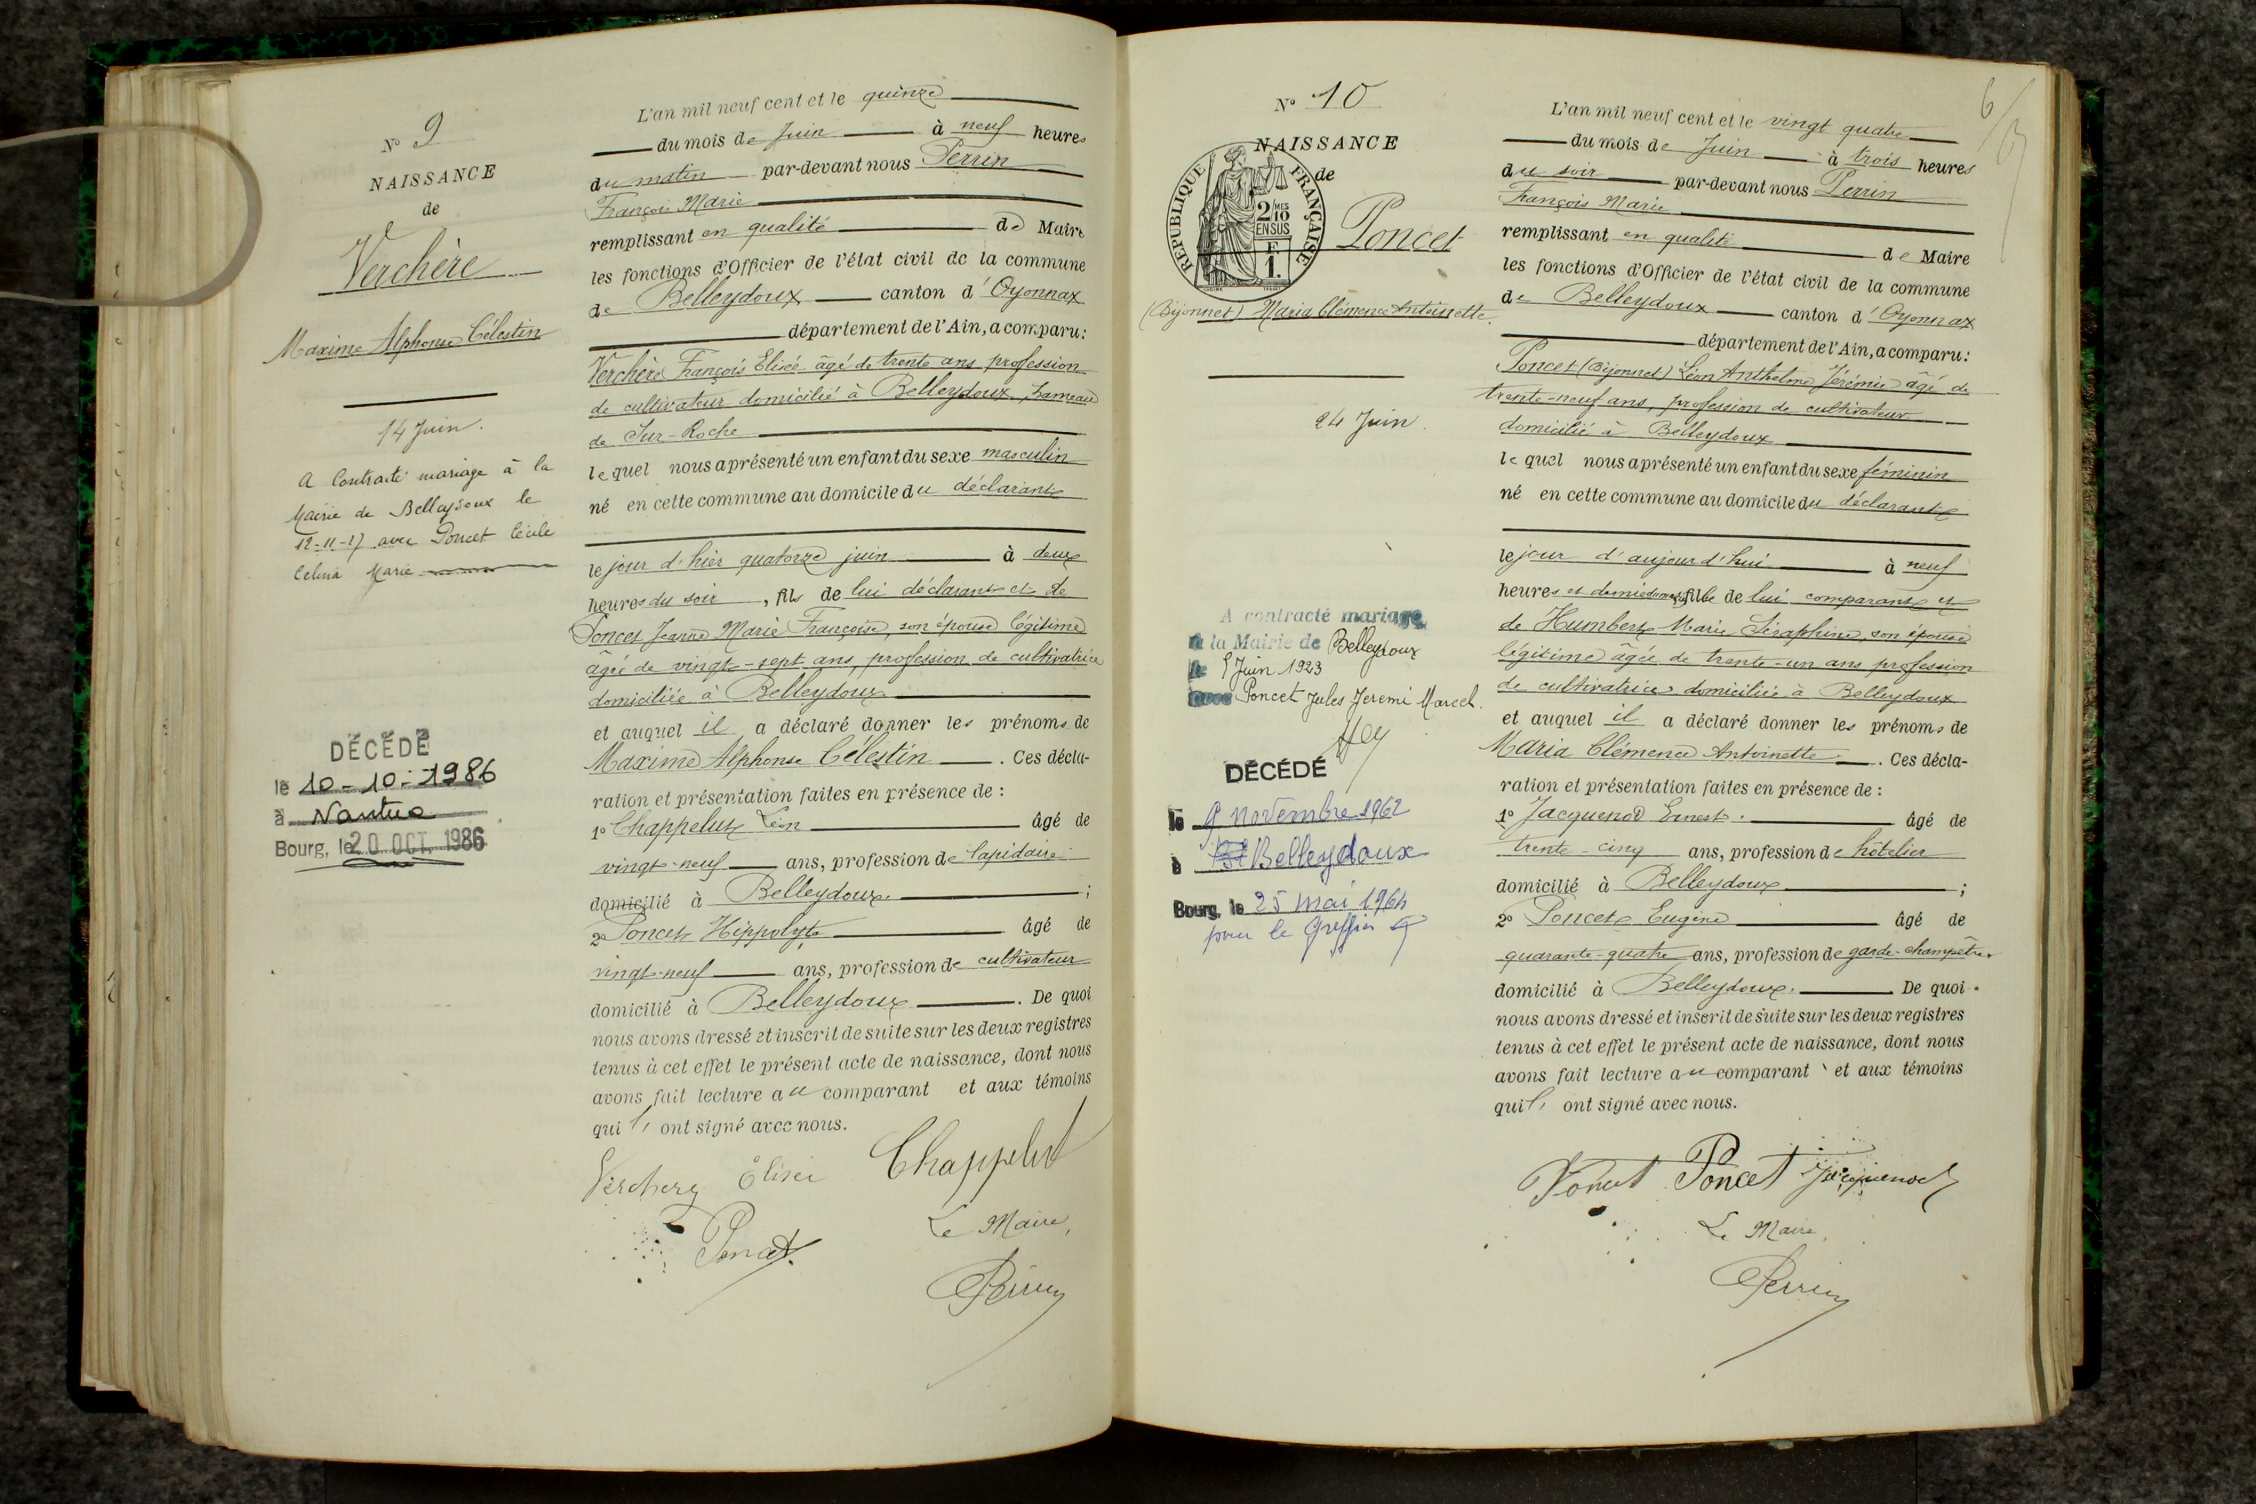 N° 9
NAISSANCE
de
Verchère
Maxime Alphonse Célestin
14 Juin.
A Contracté mariage à la
Mairie de Belleydoux le
12-11-27 avec Poncet Cécile
Celina Marie
DÉCÉDÉ
le 10-10-1986
à Nantua
Bourg, le 20 OCT. 1986
L'an mil neuf cent et le quinze
du mois de Juin à neuf heures
du matin par-devant nous Perrin
François Marie
remplissant en qualité de Maire
les fonctions d'Officier de l'état civil de la commune
de Belleydoux canton d'Oyonnax
département de l'Ain, a comparu:
Verchère François Elisée âgé de trente ans profession
de cultivateur domicilié à Belleydoux, hameau
de Sur-Roche
lequel nous a présenté un enfant du sexe masculin
né en cette commune au domicile du déclarant
le jour d'hier quatorze juin à deux
heures du soir, fils de lui déclarant et de
Poncet Jeanne Marie Françoise, son épouse légitime
âgée de vingt-sept ans, profession de cultivatrice
domiciliée à Belleydoux
et auquel il a déclaré donner les prénoms de
Maxime Alphonse Célestin. Ces décla-
ration et présentation faites en présence de :
1° Chappelut Léon âgé de
vingt-neuf ans, profession de lapidaire
domicilié à Belleydoux. ;
2° Poncet Hippolyte âgé de
vingt-neuf ans, profession de cultivateur
domicilié à Belleydoux. De quoi
nous avons dressé et inscrit de suite sur les deux registres
tenus à cet effet le présent acte de naissance, dont nous
avons fait lecture au comparant et aux témoins
qui ont signé avec nous.
Verchere Elisée Chappelut
Poncet
Le Maire,
Perrin
6
N° 10
NAISSANCE
de
RÉPUBLIQUE FRANÇAISE
2/10 MES
EN SUS
F
1.
Poncet
(Bijonnet) Maria Clémence Antoinette.
24 Juin.
A contracté mariage
à la Mairie de Belleydoux
le 5 Juin 1923
avec Poncet Jules Jeremi Marcel.
DÉCÉDÉ
le 9 novembre 1962
à Belleydoux
Bourg, le 25 mai 1964
pour le Greffier
L'an mil neuf cent et le vingt quatre
du mois de Juin à trois heures
du soir par-devant nous Perrin
François Marie
remplissant en qualité de Maire
les fonctions d'Officier de l'état civil de la commune
de Belleydoux canton d'Oyonnax
département de l'Ain, a comparu:
Poncet (Bijonnet) Léon Anthelme Jérémie âgé de
trente-neuf ans, profession de cultivateur
domicilié à Belleydoux
lequel nous a présenté un enfant du sexe féminin
né en cette commune au domicile du déclarant
le jour d'aujourd'hui à neuf
heures et demie du fille de lui comparant et
de Humbert Marie Séraphine, son épouse
légitime âgée de trente-un ans profession
de cultivatrice, domiciliée à Belleydoux
et auquel il a déclaré donner les prénoms de
Maria Clémence Antoinette. Ces décla-
ration et présentation faites en présence de :
1° Jacquenod Ernest. âgé de
trente-cinq ans, profession de hôtelier
domicilié à Belleydoux ;
2° Poncet Eugène âgé de
quarante-quatre ans, profession de garde-champêtre
domicilié à Belleydoux. De quoi
nous avons dressé et inscrit de suite sur les deux registres
tenus à cet effet le présent acte de naissance, dont nous
avons fait lecture au comparant et aux témoins
qui ont signé avec nous.
Poncet Poncet Jacquenod
Le Maire,
Perrin